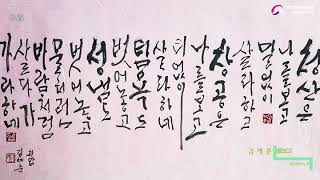 청산은
나를보고
말없이
살라하고
창공은
나를보고
티없이
살라하네
탐욕도
벗어놓고
성냄도
벗어놓고
물처럼
바람처럼
살다가
가라하네